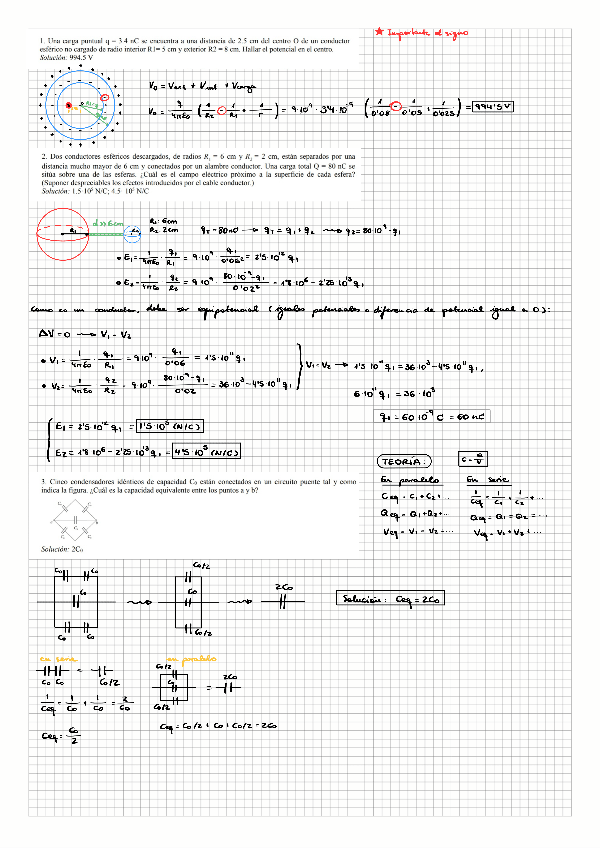 ★ Importante el signo
1. Una carga puntual q = 3.4 nC se encuentra a una distancia de 2.5 cm del centro O de un conductor
esférico no cargado de radio interior R1= 5 cm y exterior R2 = 8 cm. Hallar el potencial en el centro.
Solución: 994.5 V
V₀ = Vext + Vint + Vcarga
V₀ = q/4πE₀ (1/R₂ - 1/R₁ + 1/r) = 9·10⁹ · 3'4·10⁻⁹ (1/0'08 - 1/0'05 + 1/0'025) = 994'5 V
2. Dos conductores esféricos descargados, de radios R₁ = 6 cm y R₂ = 2 cm, están separados por una
distancia mucho mayor de 6 cm y conectados por un alambre conductor. Una carga total Q = 80 nC se
sitúa sobre una de las esferas. ¿Cuál es el campo eléctrico próximo a la superficie de cada esfera?
(Suponer despreciables los efectos introducidos por el cable conductor.)
Solución: 1.5·10⁵ N/C; 4.5· 10⁵ N/C
R₁
d>>6cm
R₂
R₁: 6cm
R₂: 2cm
qT = 80nC → qT = q₁ + q₂ → q₂ = 80·10⁻⁹ - q₁
• E₁ = 1/4πE₀ · q₁/R₁ = 9·10⁹ · q₁/0'06² = 2'5·10¹² q₁
• E₂ = 1/4πE₀ · q₂/R₂ = 9·10⁹ · 80·10⁻⁹-q₁/0'02² = 1'8·10⁶ - 2'25·10¹³ q₁
Como es un conductor, debe ser equipotencial (iguales potenciales o diferencia de potencial igual a 0):
ΔV = 0 → V₁ = V₂
• V₁ = 1/4πE₀ · q₁/R₁ = 9·10⁹ · q₁/0'06 = 1'5·10¹¹ q₁
• V₂ = 1/4πE₀ · q₂/R₂ = 9·10⁹ · 80·10⁻⁹-q₁/0'02 = 36·10³ - 4'5·10¹¹ q₁
V₁=V₂ → 1'5·10¹¹ q₁ = 36·10³ - 4'5·10¹¹ q₁
6·10¹¹ q₁ = 36·10³
q₁ = 60·10⁻⁹ C = 60 nC
E₁ = 2'5·10¹² q₁ = 1'5·10⁵ (N/C)
E₂ = 1'8·10⁶ - 2'25·10¹³ q₁ = 4'5·10⁵ (N/C)
TEORÍA:
C = Q/V
En paralelo
En serie
Ceq = C₁ + C₂ + ...
1/Ceq = 1/C₁ + 1/C₂ + ...
Qeq = Q₁ + Q₂ + ...
Qeq = Q₁ = Q₂ = ...
Veq = V₁ = V₂ = ...
Veq = V₁ + V₂ + ...
3. Cinco condensadores idénticos de capacidad C₀ están conectados en un circuito puente tal y como
indica la figura. ¿Cuál es la capacidad equivalente entre los puntos a y b?
Solución: 2C₀
C₀ C₀
C₀
C₀ C₀
C₀/2
C₀
C₀/2
2C₀
Solución: Ceq = 2C₀
en serie
en paralelo
C₀ C₀ = C₀/2
C₀/2
C₀
C₀/2
= 2C₀
1/Ceq = 1/C₀ + 1/C₀ = 2/C₀
Ceq = C₀/2 + C₀ + C₀/2 = 2C₀
Ceq = C₀/2